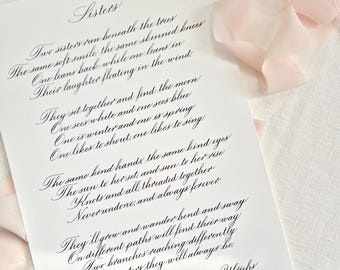 Sisters
Two sisters run beneath the trees
The same soft smile, the same skinned knees
One leans back while one leans in
Their laughter floating in the wind
They sit together and find the moon
One sees white and one sees blue
One is winter and one is spring
One likes to shout, one likes to sing
The same kind hands, the same kind eyes
The sun to her set, and sun to her rise
Knots and all, threaded together
Never undone, and always forever.
They'll grow and wander, bend and sway
On different paths will find their way
Two branches reaching differently
sisters they will always be.